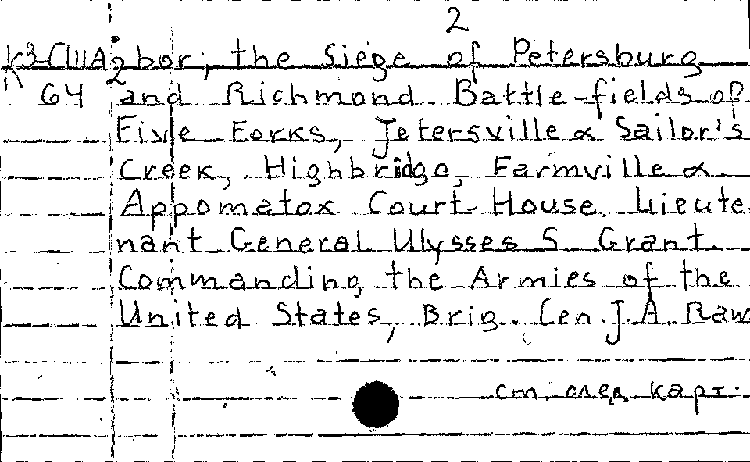 2
К3-США2 bor; the Siege of Petersburg
64 and Richmond Battle-fields of
Five Forks, Jetersville & Sailor's
Creek, Highbridge, Farmville &
Appomatox Court House. Lieute
nant General Ulysses S. Grant.
Commanding the Armies of the
United States, Brig. Gen. J.A. Raw
см. след. карт.